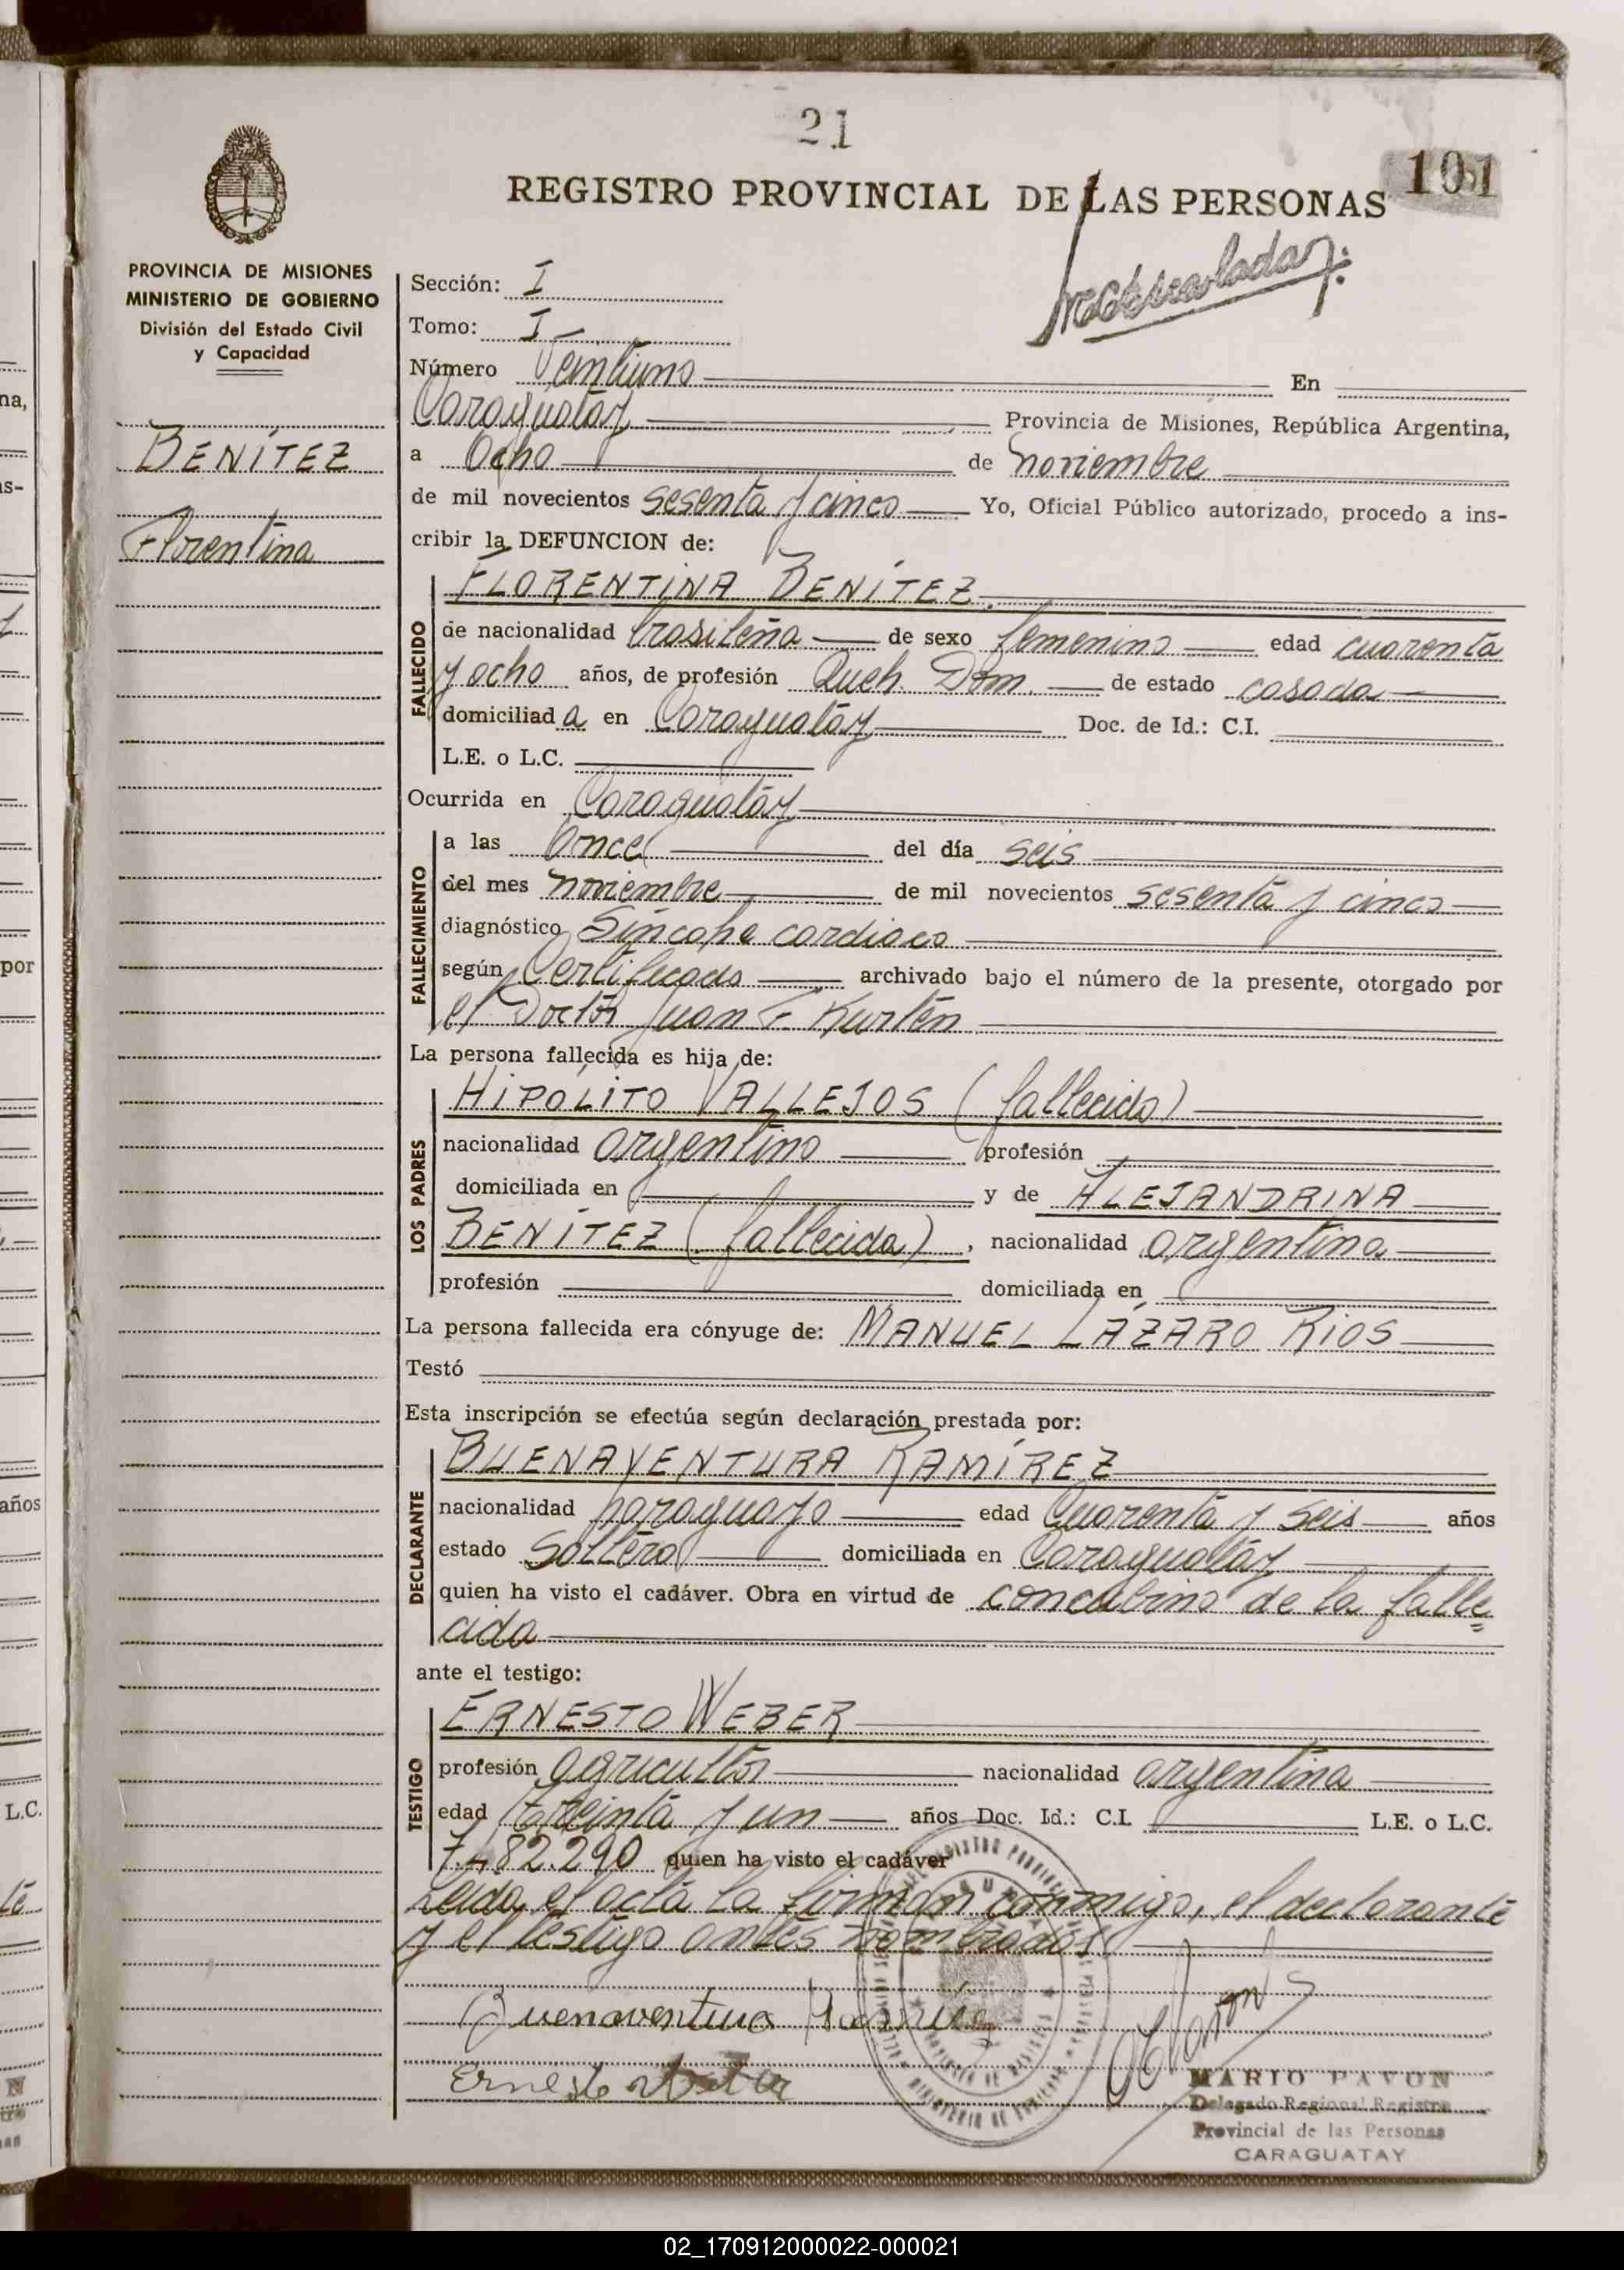 21
101
REGISTRO PROVINCIAL DE LAS PERSONAS
PROVINCIA DE MISIONES
MINISTERIO DE GOBIERNO
División del Estado Civil
y Capacidad
BENÍTEZ
Florentina
Sección: I
Tomo: I
Número Veintiuno En
Caraguatay Provincia de Misiones, República Argentina,
a Ocho de noviembre
de mil novecientos sesenta y cinco Yo, Oficial Público autorizado, procedo a ins-
cribir la DEFUNCION de:
FALLECIDO
FLORENTINA BENÍTEZ.
de nacionalidad brasileña de sexo femenino edad cuarenta
y ocho años, de profesión Queh. Dom. de estado casada
domiciliad a en Caraguatay Doc. de Id.: C.I.
L.E. o L.C.
Ocurrida en Caraguatay
FALLECIMIENTO
a las Once del día seis
del mes noviembre de mil novecientos sesenta y cinco
diagnóstico Síncope cardíaco
según Certificado archivado bajo el número de la presente, otorgado por
el Doctor Juan F. Kurtén
La persona fallecida es hija de:
LOS PADRES
HIPÓLITO VALLEJOS (fallecido)
nacionalidad argentino profesión
domiciliada en y de ALEJANDRINA
BENÍTEZ (fallecida), nacionalidad argentina
profesión domiciliada en
La persona fallecida era cónyuge de: MANUEL LÁZARO RIOS
Testó
Esta inscripción se efectúa según declaración prestada por:
DECLARANTE
BUENAVENTURA RAMÍREZ
nacionalidad paraguayo edad Cuarenta y seis años
estado Soltero domiciliada en Caraguatay
quien ha visto el cadáver. Obra en virtud de concubino de la falle
cida
ante el testigo:
TESTIGO
ERNESTO WEBER
profesión agricultor nacionalidad argentina
edad treinta y un años Doc. Id.: C.I. L.E. o L.C.
7.482.290 quien ha visto el cadáver
Leida el acta la firman conmigo, el declarante
y el testigo antes nombrados
Buenaventura Ramírez
Ernesto Weber
MARIO PAVON
Delegado Regional Registro
Provincial de las Personas
CARAGUATAY
na,
por
años
L.C.
02_170912000022-000021